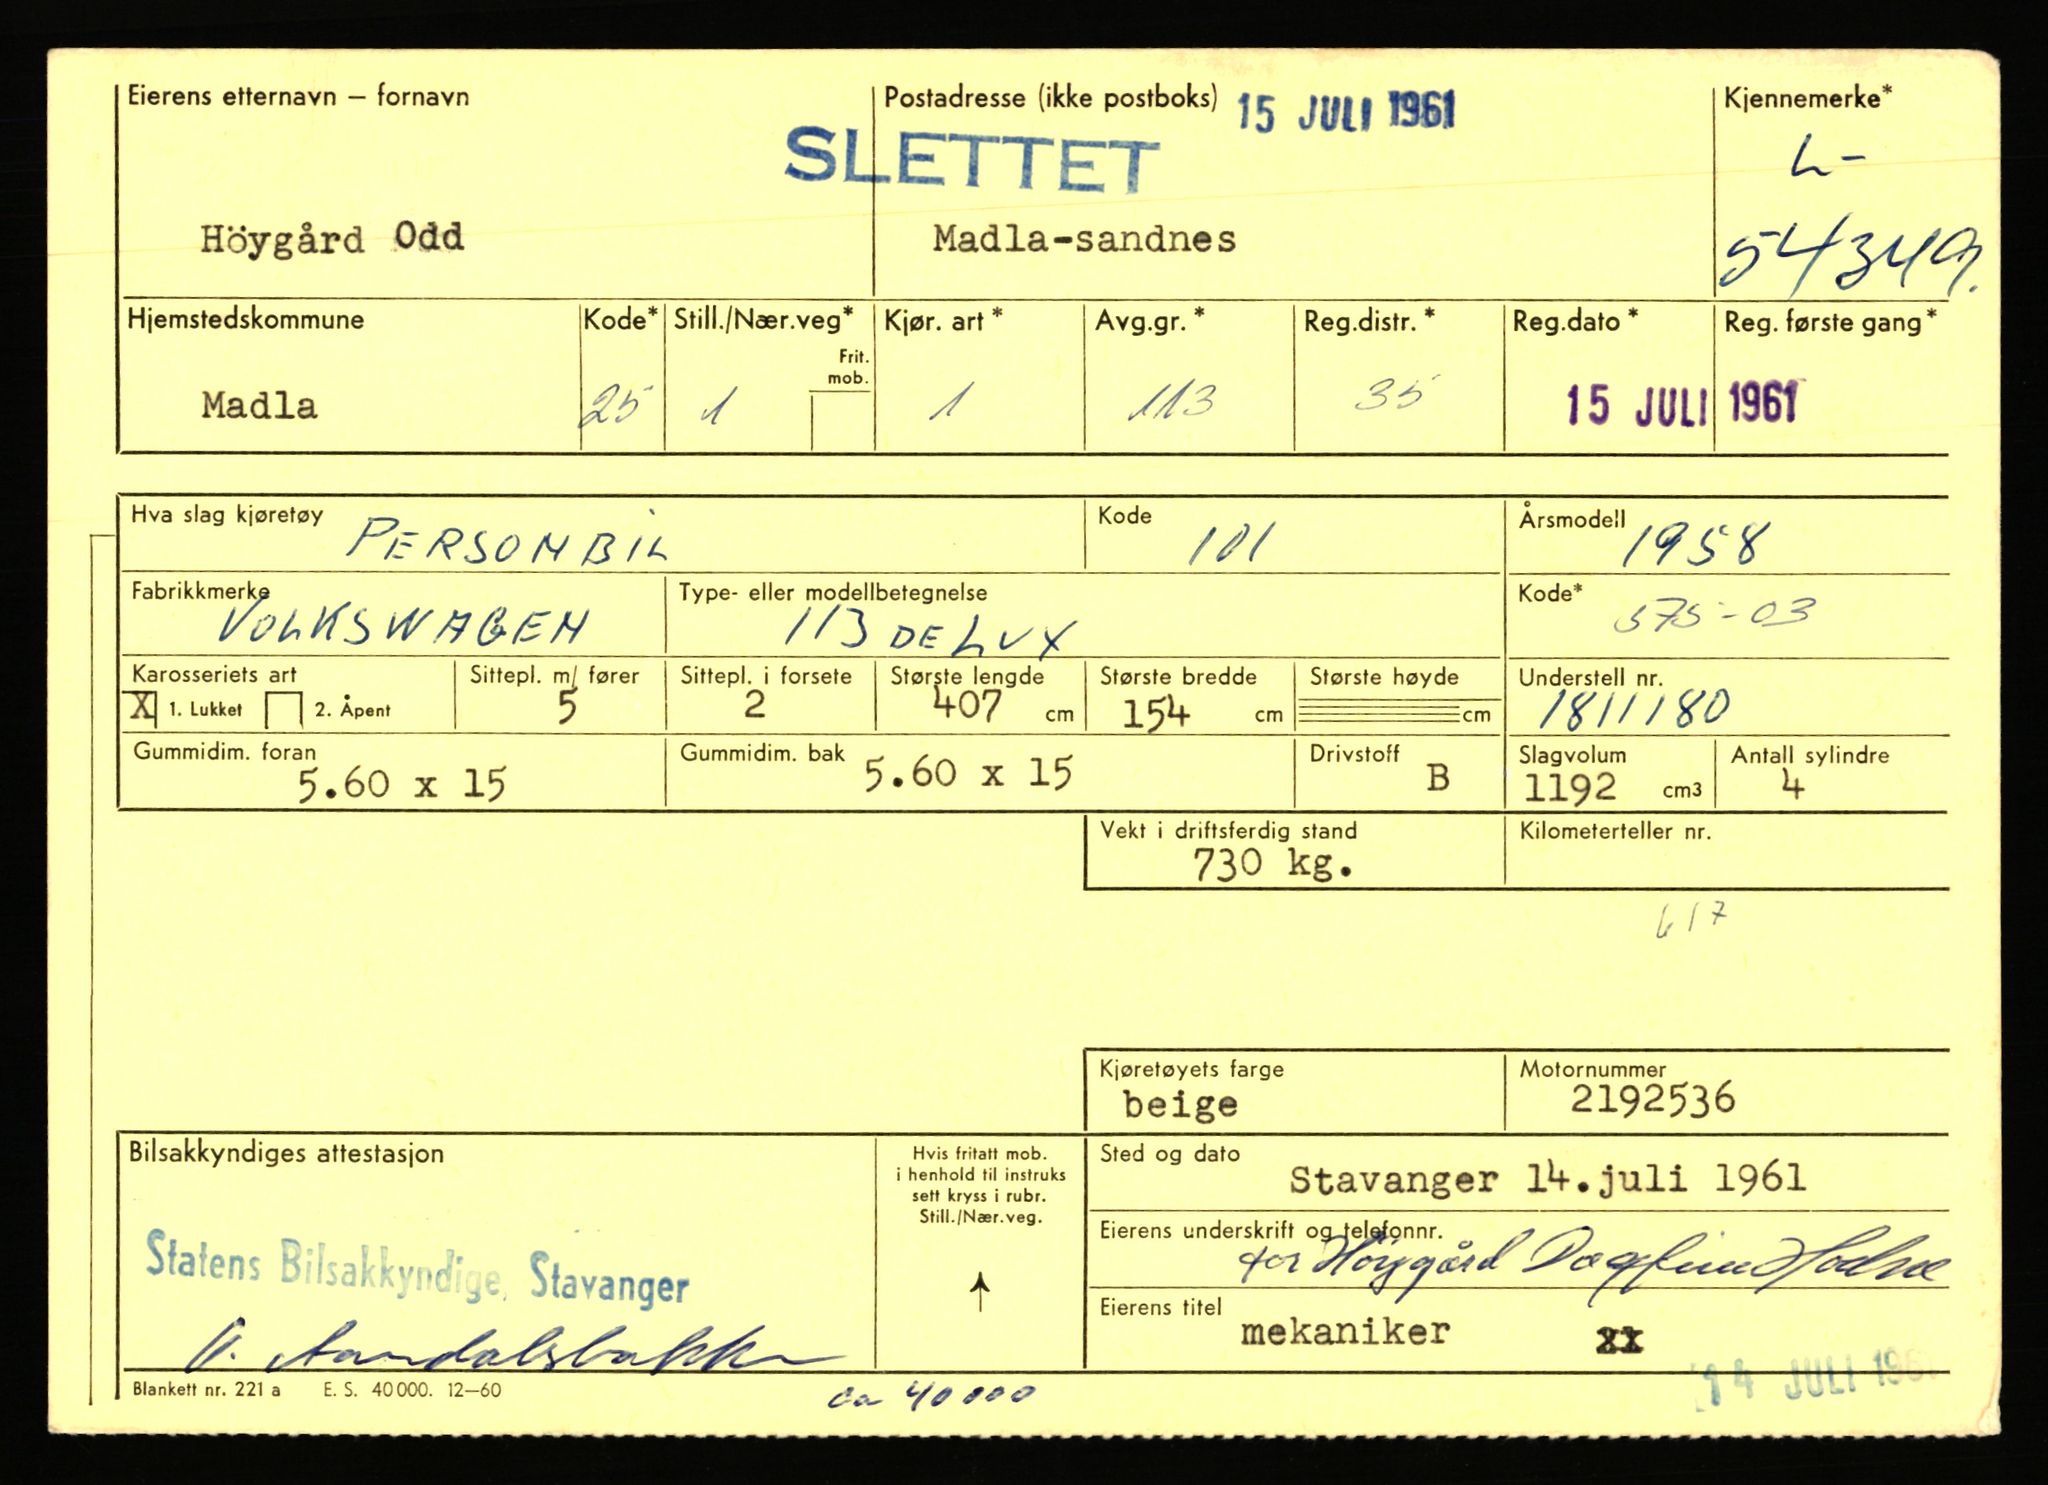 Eierens etternavn – fornavn
Postadresse (ikke postboks) 15 JULI 1961
Kjennemerke*
SLETTET
L-
Höygård Odd
Madla-sandnes
54349.
Hjemstedskommune
Kode*
Still./Nær.veg*
Kjør. art *
Avg.gr. *
Reg.distr. *
Reg.dato *
Reg. første gang*
Frit. mob.
Madla
25
1
1
113
35
15 JULI 1961
Hva slag kjøretøy
PERSONBIL
Kode
101
Årsmodell
1958
Fabrikkmerke
VOLKSWAGEN
Type- eller modellbetegnelse
113 DE LUX
Kode*
575-03
Karosseriets art
X 1. Lukket 2. Åpent
Sittepl. m/ fører
5
Sittepl. i forsete
2
Største lengde
407 cm
Største bredde
154 cm
Største høyde
cm
Understell nr.
1811180
Gummidim. foran
5.60 x 15
Gummidim. bak
5.60 x 15
Drivstoff
B
Slagvolum
1192 cm3
Antall sylindre
4
Vekt i driftsferdig stand
730 kg.
Kilometerteller nr.
617
Kjøretøyets farge
beige
Motornummer
2192536
Bilsakkyndiges attestasjon
Statens Bilsakkyndige, Stavanger
Hvis fritatt mob.
i henhold til instruks
sett kryss i rubr.
Still./Nær.veg.
Sted og dato
Stavanger 14.juli 1961
Eierens underskrift og telefonnr.
for Höygård Dagfinn
Eierens titel
mekaniker xx
14 JULI 196
Blankett nr. 221 a E. S. 40 000. 12–60
ca 40000